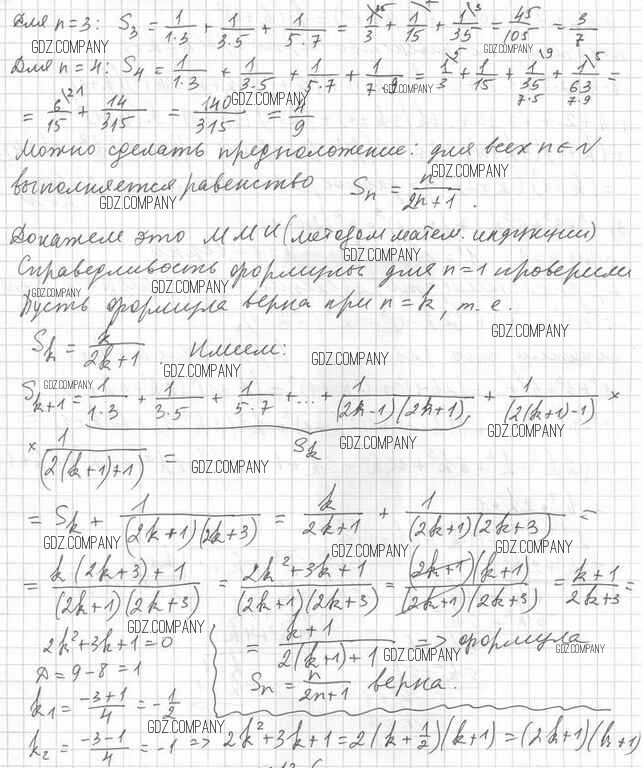 Для n=3: S₃ = 1/(1·3) + 1/(3·5) + 1/(5·7) = 1/3 + 1/15 + 1/35 = 45/105 = 3/7
GDZ.COMPANY
GDZ.COMPANY
Для n=4: S₄ = 1/(1·3) + 1/(3·5) + 1/(5·7) + 1/(7·9) = 1/3\5 + 1/15 + 1/35\9 + 1/63\5 =
7·5 7·9
GDZ.COMPANY
GDZ.COMPANY
= 6/15\21 + 14/315 = 140/315 = 4/9
Можно сделать предположение: для всех n ∈ N
GDZ.COMPANY
выполняется равенство Sₙ = n/(2n+1).
GDZ.COMPANY
Докажем это ММИ (методом матем. индукции)
GDZ.COMPANY
Справедливость формулы для n=1 проверили
GDZ.COMPANY
GDZ.COMPANY
Пусть формула верна при n=k, т. е.
GDZ.COMPANY
Sₖ = k/(2k+1). Имеем:
GDZ.COMPANY
GDZ.COMPANY
GDZ.COMPANY
Sₖ₊₁ = 1/(1·3) + 1/(3·5) + 1/(5·7) + ... + 1/((2k-1)(2k+1)) + 1/(2(k+1)-1) ×
GDZ.COMPANY
Sₖ
GDZ.COMPANY
× 1/(2(k+1)+1) =
GDZ.COMPANY
= Sₖ + 1/((2k+1)(2k+3)) = k/(2k+1) + 1/((2k+1)(2k+3)) =
GDZ.COMPANY
GDZ.COMPANY
GDZ.COMPANY
= (k(2k+3)+1)/((2k+1)(2k+3)) = (2k²+3k+1)/((2k+1)(2k+3)) = ((2k+1)(k+1))/((2k+1)(2k+3)) = (k+1)/(2k+3) =
GDZ.COMPANY
= (k+1)/(2(k+1)+1) => формула
GDZ.COMPANY
GDZ.COMPANY
Sₙ = n/(2n+1) верна.
2k²+3k+1=0
D=9-8=1
k₁ = (-3+1)/4 = -1/2
GDZ.COMPANY
k₂ = (-3-1)/4 = -1 => 2k²+3k+1=2(k+1/2)(k+1)=(2k+1)(k+1)